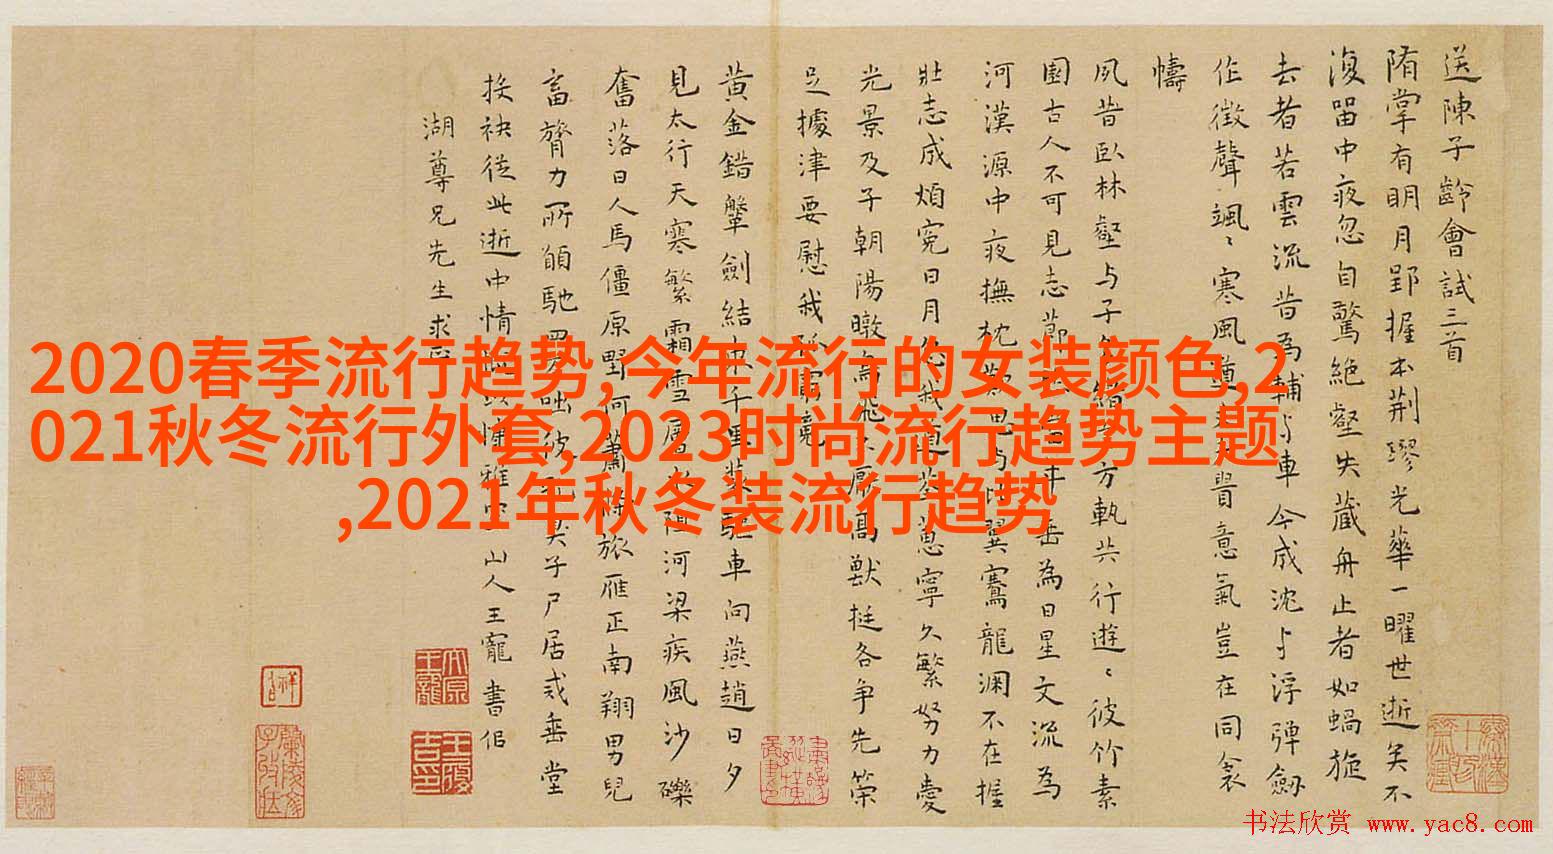 2020春季流行趋势,今年流行的女装颜色,2
021秋冬流行外套,2023时尚流行趋势主题
,2021年秋冬装流行趋势
送陳子齡會試三首
隋掌有明月郢握本荆璆光華一曜世逝矣不
復留中夜忽自驚絶壑失藏舟止者如蝸旋
去者若雲流昔為輔與車今成沈與浮彈劔
作徵聲颯〻寒風
意氣豈在同衾
幬
夙昔卧林壑与子
方執共行遊〻彼竹素
園古人不可見志
垂為日星文流為
河漢源中夜撫枕
翼騫龍淵不在握
壯志成煩寃日月
蒽寧久繁努力愛
光景及子朝陽暾
厭高獸挺各争先榮
足據津要慰我
黄金錯鞶劍結
裝驅車向燕趙日夕
見太行天寒繁霜雪層冰阻河梁疾風沙礫
奮落日人馬僵原野何蕭條旅雁正南翔男兒
畜膂力所願馳
子尸居戒垂堂
接袂從此逝中情
湖尊兄先生求
雅宜山人王寵書侣
書法欣赏 www.yac8.com